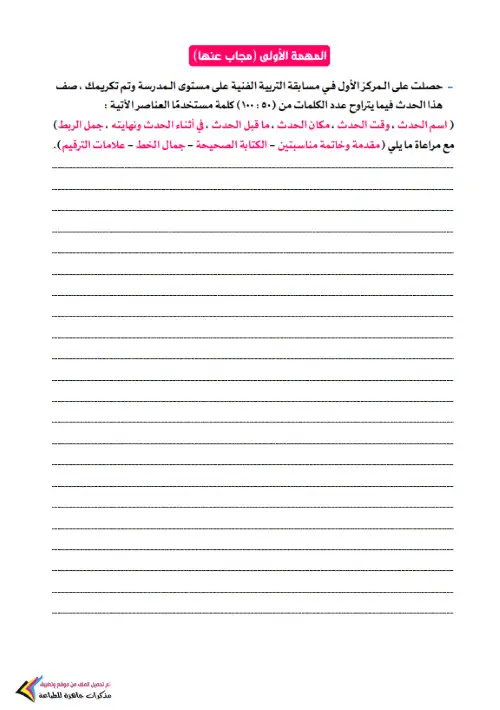 المهمة الأولى (مجاب عنها)
- حصلت على المركز الأول في مسابقة التربية الفنية على مستوى المدرسة وتم تكريمك ، صف
هذا الحدث فيما يتراوح عدد الكلمات من (٥٠ : ١٠٠) كلمة مستخدمًا العناصر الآتية :
( اسم الحدث ، وقت الحدث ، مكان الحدث ، ما قبل الحدث ، في أثناء الحدث ونهايته ، جمل الربط)
مع مراعاة ما يلي ( مقدمة وخاتمة مناسبتين - الكتابة الصحيحة - جمال الخط - علامات الترقيم).
تم تحميل الملف من موقع وتطبيق
مذكرات جاهزة للطباعة